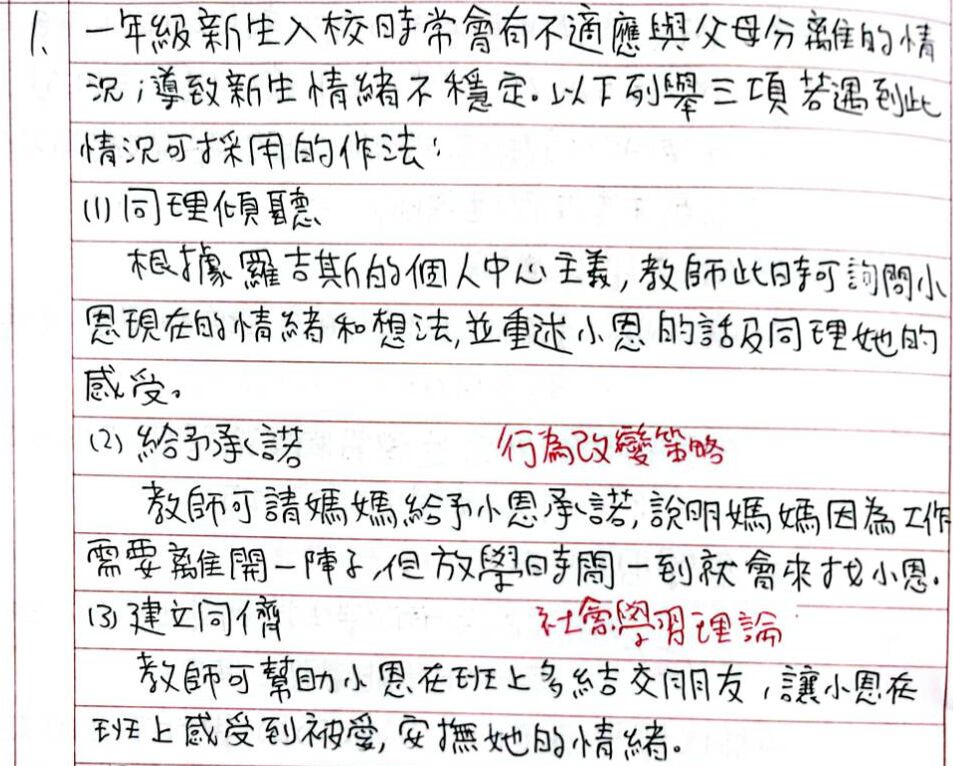 1、一年級新生入校時常會有不適應與父母分離的情
況;導致新生情緒不穩定。以下列舉三項若遇到此
情況可採用的作法:
(1)同理傾聽
根據羅吉斯的個人中心主義,教師此時可詢問小
恩現在的情緒和想法,並重述小恩的話及同理她的
感受。
(2)給予承諾 行為改變策略
教師可請媽媽給予小恩承諾,說明媽媽因為工作
需要離開一陣子,但放學時間一到就會來找小恩。
(3)建立同儕 社會學習理論
教師可幫助小恩在班上多結交朋友,讓小恩在
班上感受到被愛,安撫她的情緒。